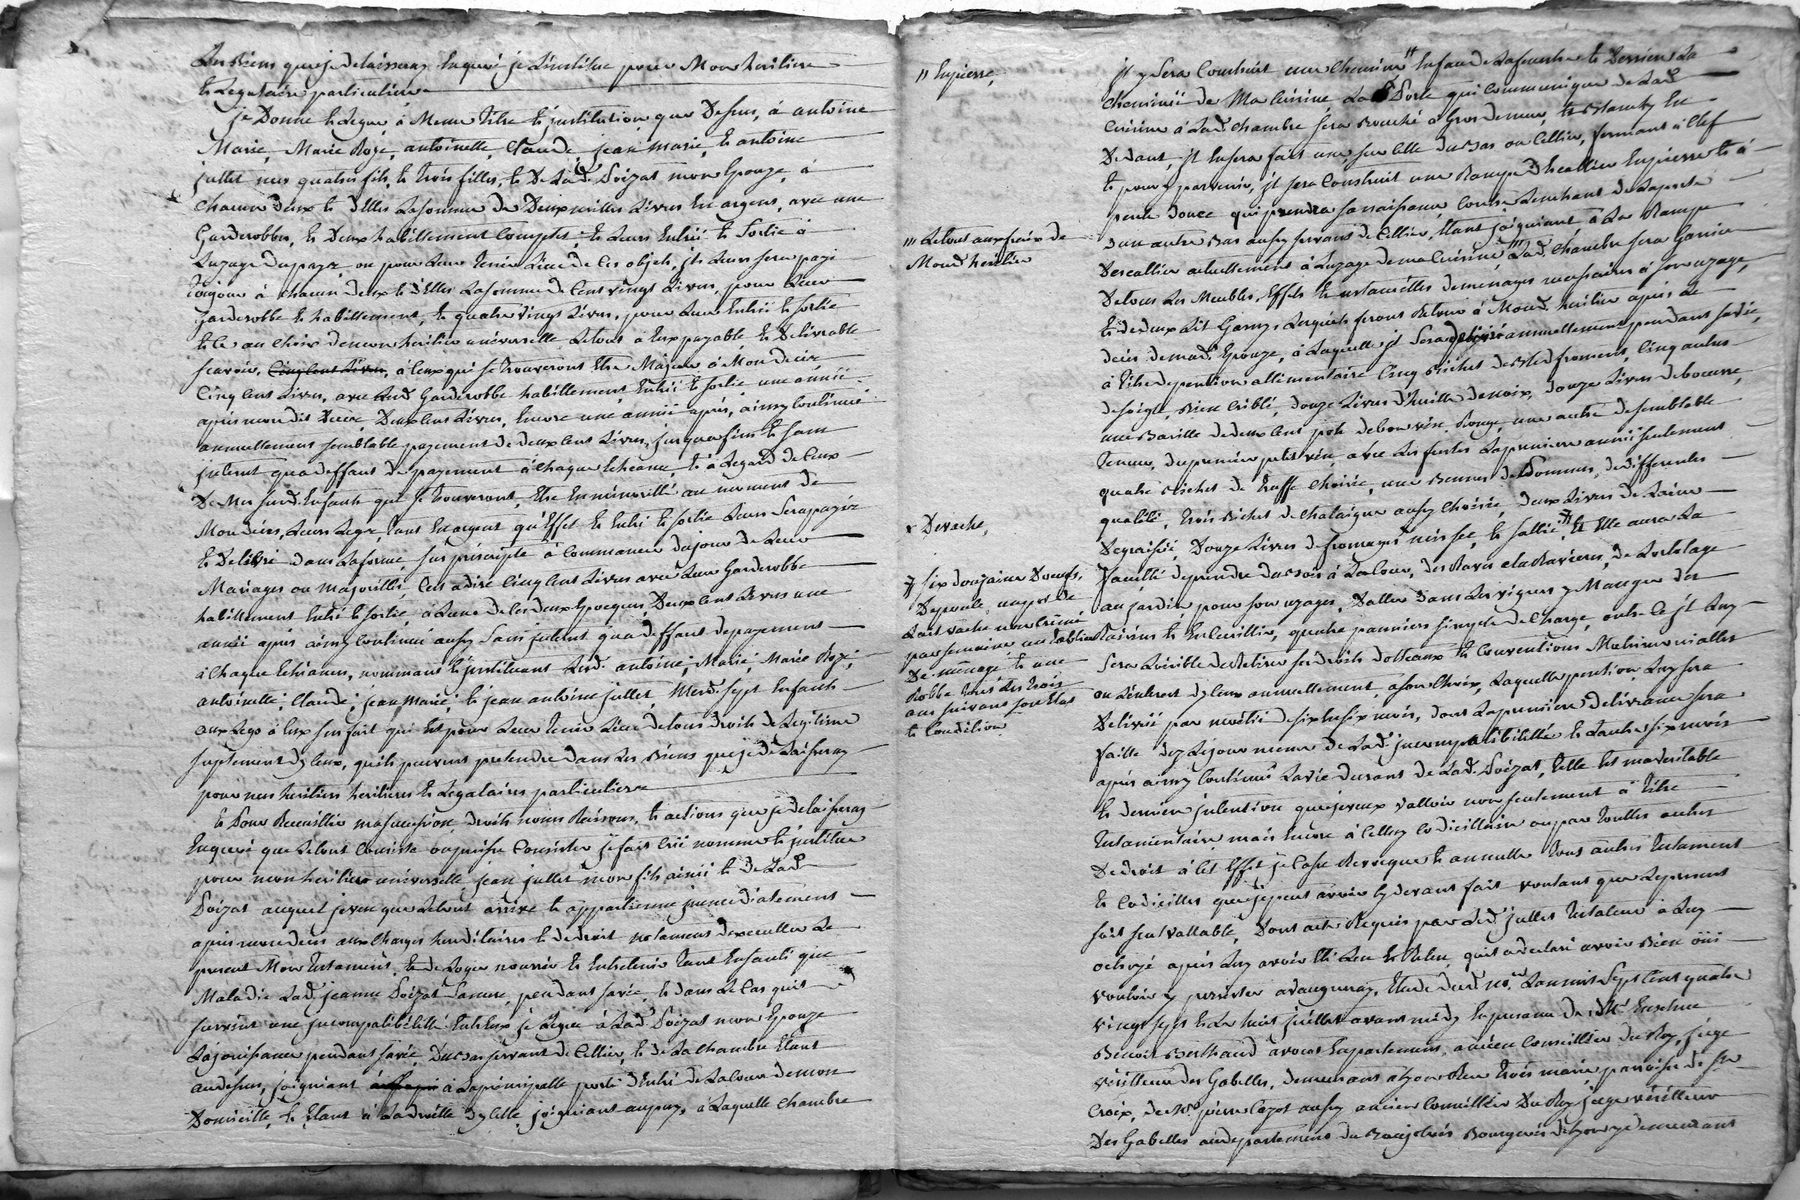 Les Biens que je Delaisseray En quoi je L'institue pour Mon heritiere
Et Legataire particuliere
je Donne Et Legue à Meme Titre Et jnstitution que Dessus, à antoine
Marie, Marie Roze, antoinette, Claude, jean Marie, Et antoine
jullet mes quatre fils, Et trois filles, Et De Lad. Poizat mon Epouze, à
Chacun D'eux Et D'Elles La somme de Deux milles Livres En argent, avec une
Garderobbe, Et Deux habillement Complet, Et Leurs Entrée Et Sortie à
L'uzage du payz, ou pour Leur Tenir Lieu de Ces objets, jls Leurs sera payé
Toujour à chacun d'eux Et d'Elles La somme de Cent vingt Livres, pour Leur
Garderobbe Et habillement, Et quatre vingt Livres, pour Leur Entrée Et sortie
Et Ce au choix de mon heritier universelle Le tout à Eux payable Et Delivrable
scavoir, à Ceux qui se trouveront Etre Majeur à Mon Decès
Cinq Cent Livres, avec Led. Garderobbe habillement, Entrée Et sortie une année
après mon dit Decès, Deux Cent Livres, Encore une année après, ainsy Continué
annuellement semblable payement de deux Cent Livres, jusqu'a fin Et sans
jnteret qu'a deffaut de payement à Chaque Echeance, Et à L'Egard de Ceux
De Mes susd. Enfants qui se trouveront, Etre En minorité au moment de
Mon decès, Leurs Legs, tant En argent qu'Effet Et Entré Et sortie Leurs sera payée
Et Delivré dans La forme sus préscripte à Commancer du jour de Leur
Mariages ou majorités C'est à dire Cinq Cent Livres avec Leur Garderobbe
habillement Entré Et sortie, à L'une de Ces deux Epocques Deux Cent Livres une
année après ainsy Continué aussy Sans jnteret qu'a deffaut de payement
à Chaque Echeance, nommant Et jnstituant Lesd. antoine, Marie, Marie Roze,
antoinette, Claude, jean Marie, Et jean antoine jullet, Mesd. sept Enfants
aux Legs à Eux sus fait qui Est pour Leur tenir Lieu de tous droits de Legitime
suplement d'jceux, qu'ils peuvent pretendre dans Les Biens que je Delaisseray
pour mes heritiers heritieres Et Legataires particuliers
Et Pour Recueillir ma succession, droits noms Raisons, Et actions que je delaisseray
En quoi que Le tout Consiste ou puisse Consister je fais Crée nomme Et jnstitue
pour mon heritier universelle jean jullet mon fils ainé Et de Lad.
Poizat auquel je veux que Le tout arrive Et appartienne jmmediatement
après mon decès aux Charges hereditaires Et de droit notament d'executer Le
present Mon Testament, Et de Loger nourrir Et Entretenir tant En santé que
Maladie Lad. jeanne Poizat sa mere, pendant sa vie, Et dans Le Cas qu'il
survint une jncompatibilité Entr'Eux je Legue à Lad. Poizat mon Epouze
La jouissance pendant sa vie Du bas servant de Cellier, Et de La chambre Etant
au dessus, joignant à La principalle porte d'Entré de La cour de mon
Domicille, Et Etant à Ladroitte d'jcelle joignant au puy, à Laquelle chambre
jl y Sera Construit une Cheminée " En face de La fenestre Et Derriere La
Cheminée de Ma Cuisine, La Porte qui Communique de Lad.
Cuisine à Lad. Chambre sera Bouché à Gros de mur, Et
Dedant, jl En sera fait une, sur Celle du bas ou Cellier, fermant à Clef
Et pour y parvenir, jl sera Construit une Rampe d'Escallier En pierre Et à
pente douce qui prendra sa naissance Contre de La porte
d'un autre Bas aussy servant de Cellier, Etant joignant à La Rampe
D'escallier actuellement à L'uzage de ma Cuisine "' Lad. Chambre sera Garnie
De tous Les Meubles, Effets Et ustancilles de ménages necessaires à son uzage,
Et de deux Lit Garnys Lesquels seront Retour à Mond. heritier après Le
decès de mad. Epouze, à Laquelle jl Sera delivré annuellement pendant sa vie,
à Titre de pention allimentaire Cinq Bichet de Bled froment, Cinq autres
de soigle, Bien Criblé, douze Livres d'huille de noix, douze Livres de beurre,
une Barille de deux Cent pots de bon vin, Rouge, une autre de semblable
Teneur, du premier petit vin, avec Les futs La premiere année seulement
quatre Bichet de truffe Choisie, une Benne de Pommes, de differentes
qualité, trois Bichet de Chataigne aussy Choisie, deux Livres de Laine
Degraissée, Douze Livres de fromages mis sec, Et sallé, Et Elle aura La
Faculté de prendre du bois à La cour, des Raves à La Raviere, de L'ortolage
au jardin pour son uzages, D'aller Dans Les vignes y Manger des
Raisins Et En Cueillir, quatre panniers simple de Charge, outre Ce jl Luy
Sera Loisible de Retirer ses droits dotteaux Et Conventions Matrimonialles
ou L'interet d'jceux annuellement, à son Choix, Laquelle pention Luy sera
Delivrée par moitié de six En six mois, dont La premiere Delivrance sera
faitte dez Le jour meme de Lad. jncompatibilité Et L'autre six mois
après ainsy Continué La vie durant de Lad. Poizat, Telle Est ma veritable
Et derniere jntention que je veux valloir non seulement à Titre
Testamentaire mais Encore à Celluy Codicillaire ou par touttes autres
De droit à Cet Effet je Casse Revoque Et annulle tous autres Testament
Et Codicilles que je peut avoir Cy devant fait voulant que Le present
soit seul vallable, Dont acte Requis par Led. jullet Testateur à Luy
octroyé après Luy avoir Eté Leu Et Releu, qu'il a declaré avoir Bien oüi
vouloir y persister à vaugneray, Etude dud. nore. L'an mil sept Cent quatre
vingt sept Et Le huit juillet avant midy En presence de Mr.
Benoit Berthaud avocat En parlement, ancien Conseiller du Roy, juge
visiteur des Gabelles, demeurant à Lyon Rue trois marie parroisse de Ste
Croix, de Sr. pierre Cazot aussy ancien Conseiller Du Roy juge visiteur
Des Gabelles au departement du Baujolois Bourgeois de Lyon y demeurant
" En pierre,
"' Le tout aux fraix de
Mond. heritier
x De vache,
# six douzaine D'oeufs,
De poule, un pot de
Lait vache non Crémé
par semaine un tablier
De menage Et une
Robbe tous Les trois
ans suivant son Etat
Et Condition